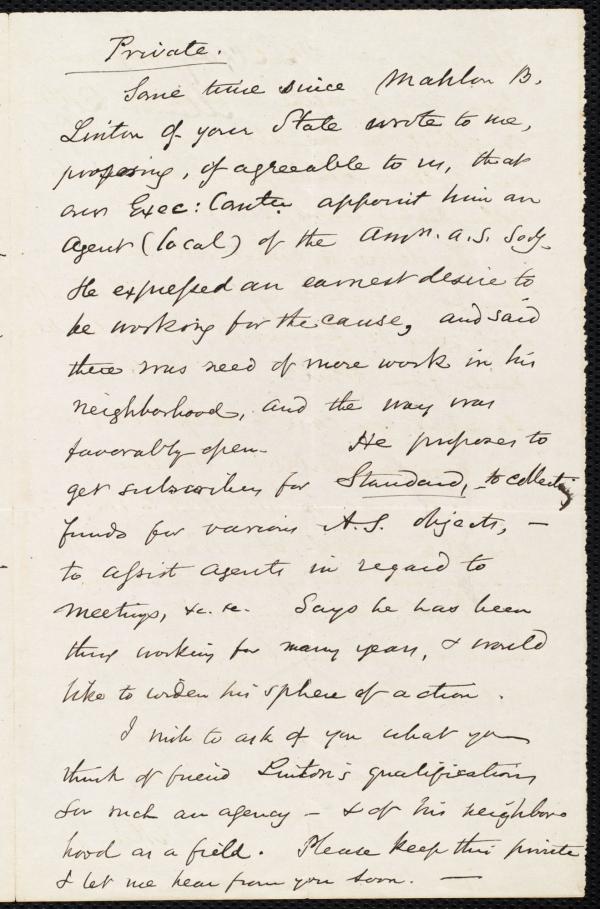 Private.
Some time since Mahlon B.
Linton of your State wrote to me,
proposing, if agreeable to us, that
our Exec: Comtee appoint him an
Agent (local) of the Amn. A. S. Socy.
He expressed an earnest desire to
be working for the cause, and said
there was need of more work in his
neighborhood, and the way was
favorably open. He proposes to
get subscribers for Standard, to collecting
funds for various A. S. objects, —
to assist agents in regard to
meetings, &c. &c. Says he has been
thus working for many years, & would
like to widen his sphere of action.
I wish to ask of you what you
think of friend Linton's qualifications
for such an agency — & of his neighbor
hood as a field. Please keep this private
& let me hear from you soon. —